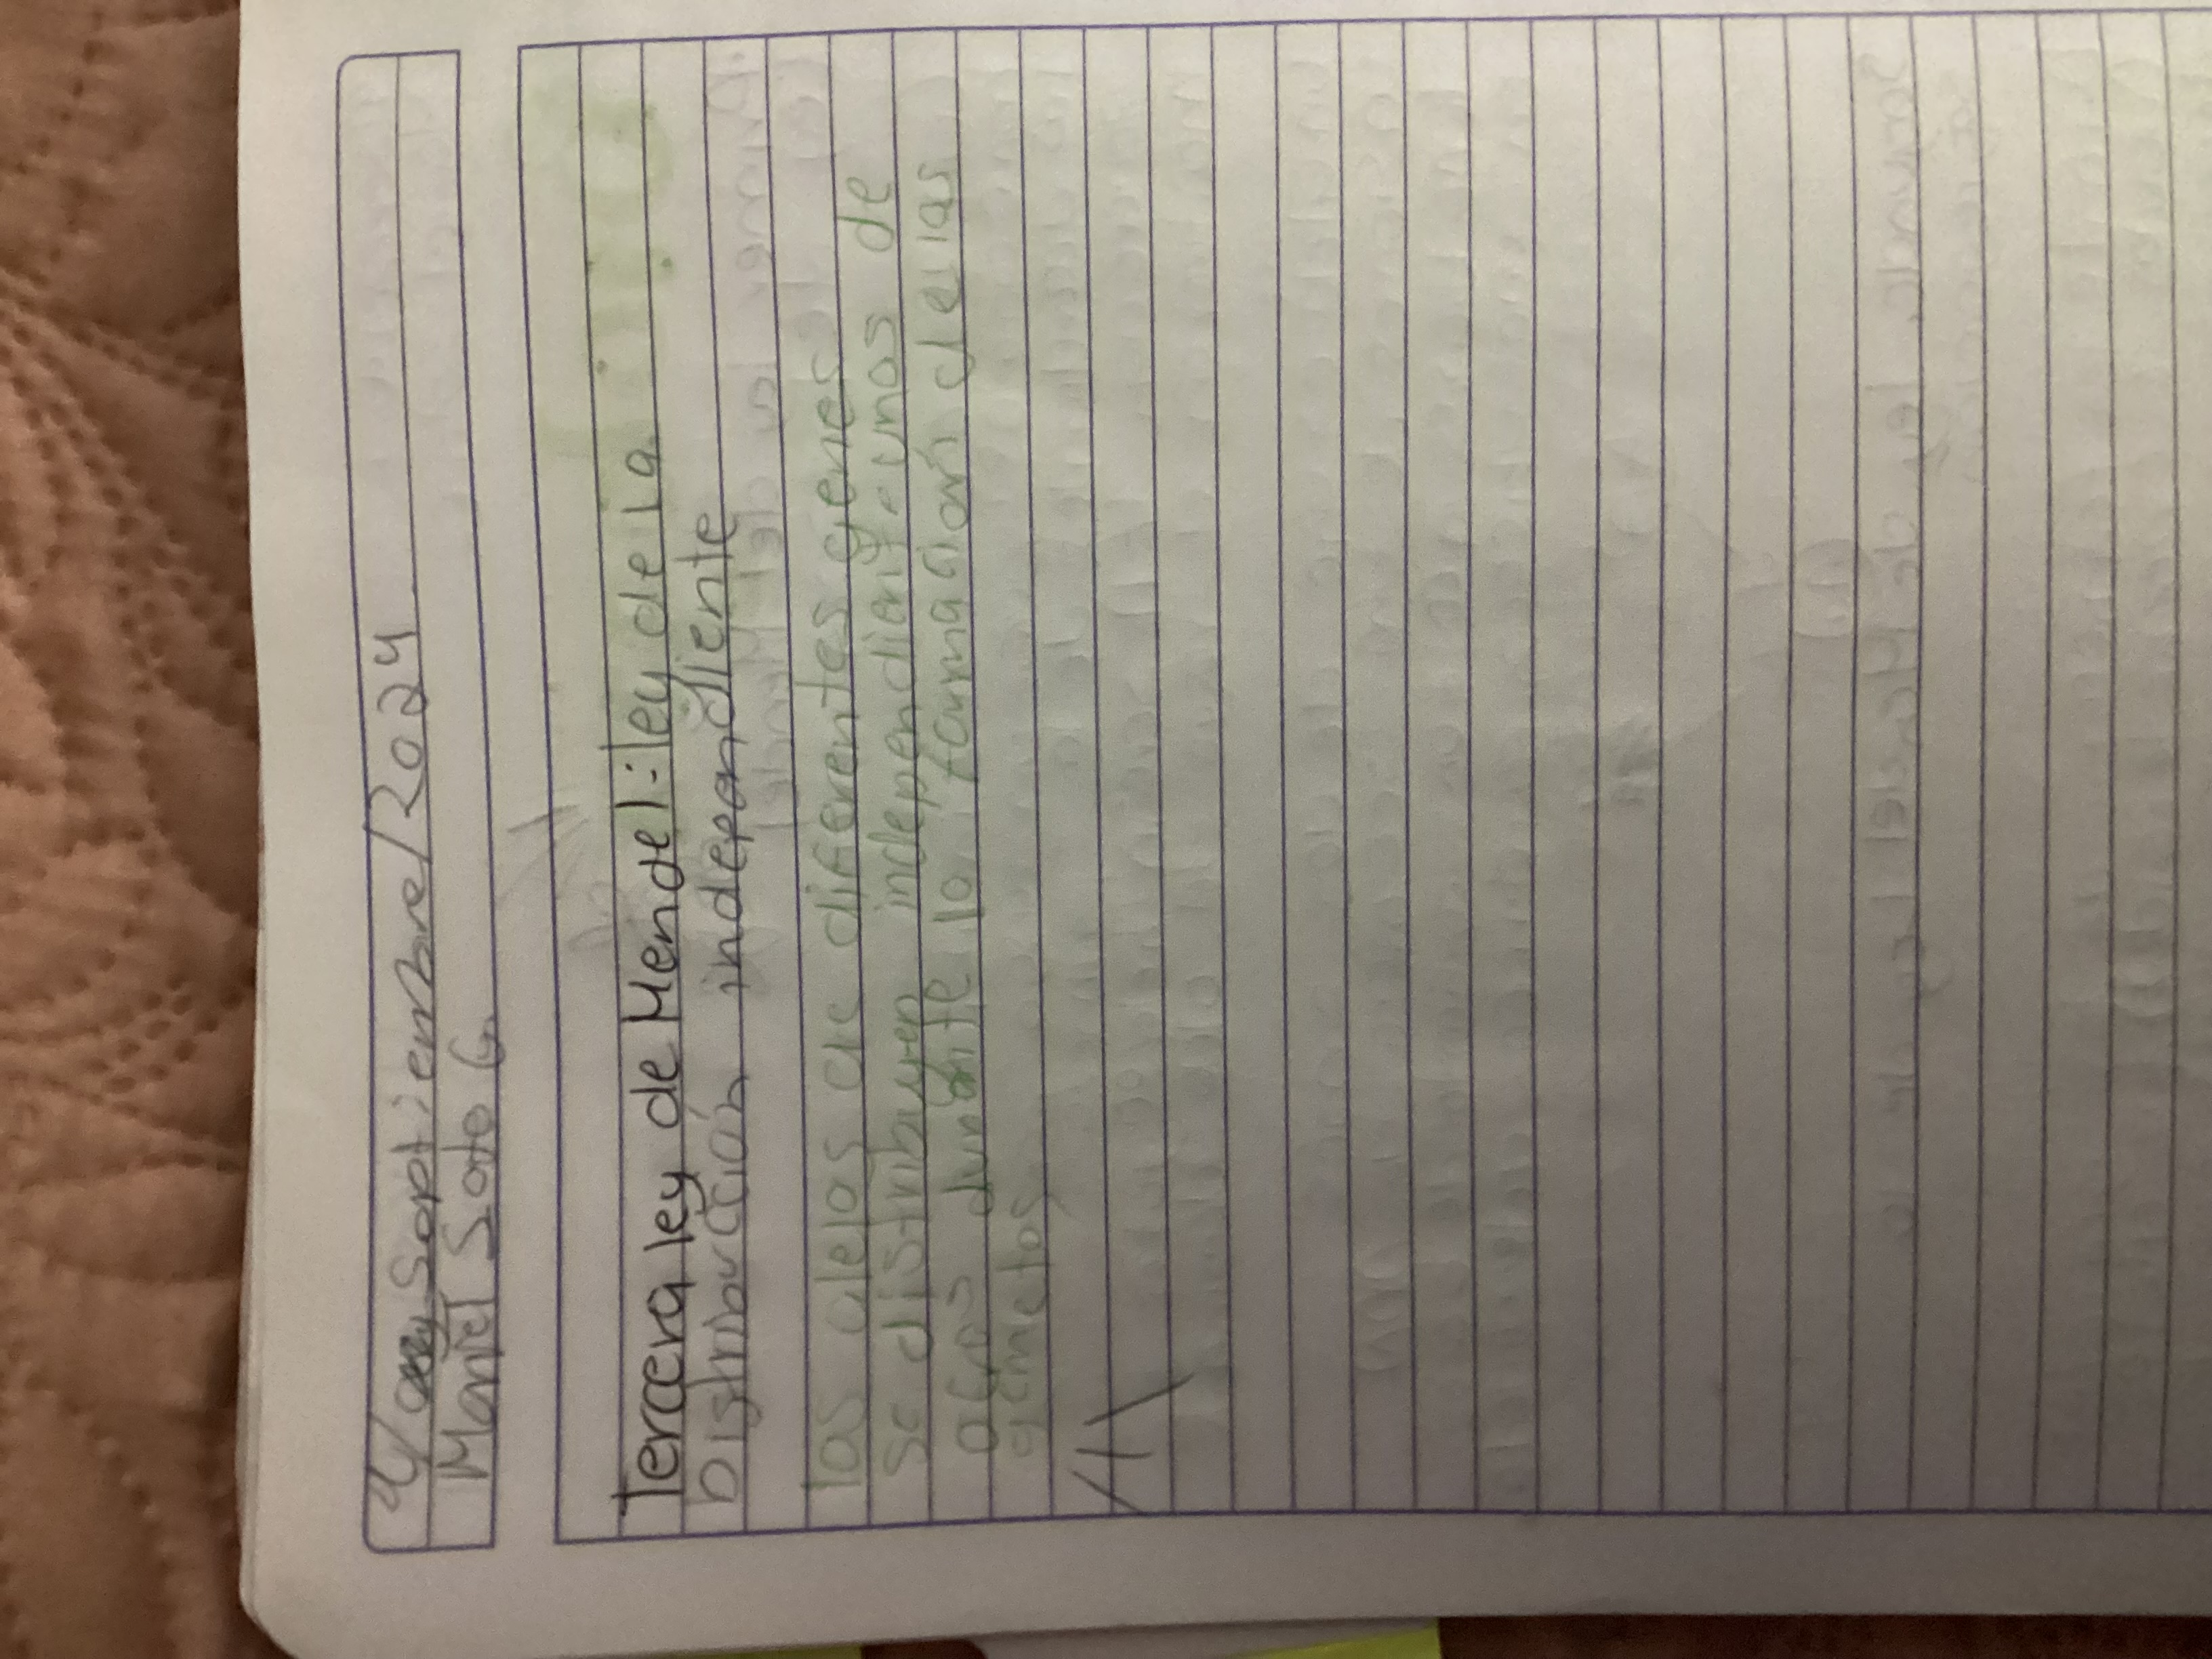 4/ Septiembre/2024
Mariel Soto G.
Tercera ley de Mendel: ley de la
Distribución independiente
los alelos de diferentes genes
se distribuyen independient unos de
otros durante la formación de las
gametos